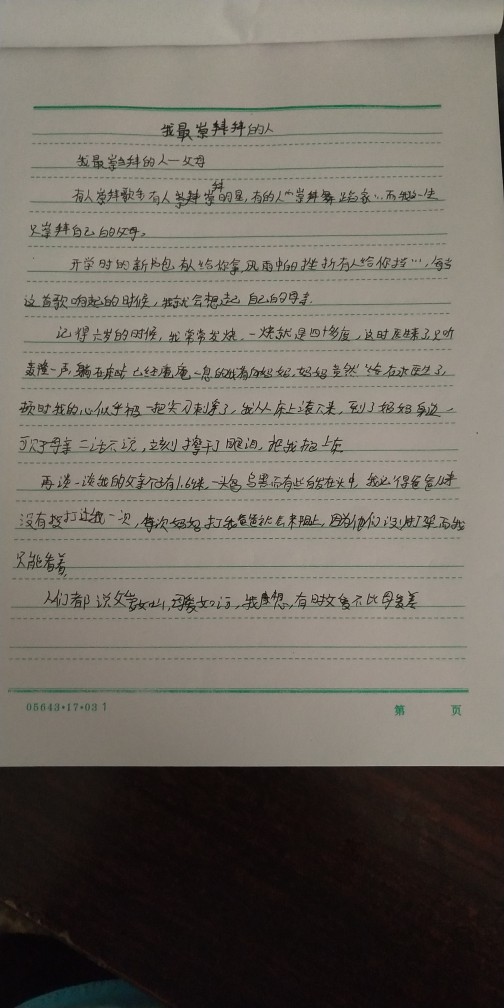 我最崇拜的人
我最崇拜的人一父母
有人崇拜歌手有人崇拜明星,有的人崇拜舞蹈家…而我一生
只崇拜自己的父母。
开学时的新书包有人给你拿,风雨中的挫折有人给你挡…,每当
这首歌响起的时候,我就会想起自己的母亲.
记得六岁的时候,我常常发烧,一烧就是四十多度,这时医生来了只听
轰隆一声,躺在床时已经奄奄一息的我看向妈妈,妈妈竟然给医生了,
顿时我的心似乎被一把尖刀刺穿了,我从床上滚下来,到了妈妈身边,
可父母亲二话不说,立刻擦干了眼泪,把我抱上床
再谈一谈我的父亲只有1.6米,一头乌黑而有些白发在头中,我记得爸爸从来
没有打过我一次,每次妈妈打我爸爸就会来阻止,因为他们没少吵架而我
只能看着,
人们都说父爱如山,母爱如海,我想,有时父爱不比母爱差
05643·17·031
第 页